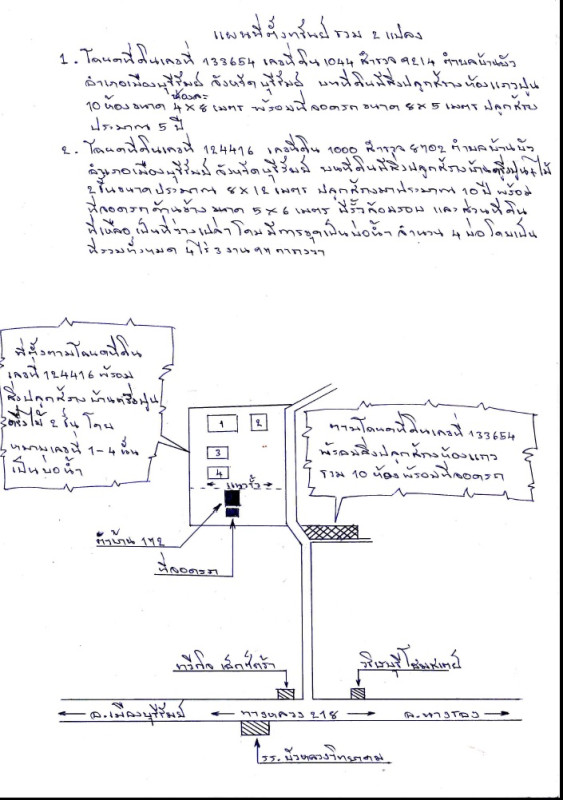 แผนที่ตั้งทรัพย์ รวม 2 แปลง
1. โฉนดที่ดินเลขที่ 133654 เลขที่ดิน 1044 สำรวจ 9214 ตำบลบ้านบัว
อำเภอเมืองบุรีรัมย์ จังหวัดบุรีรัมย์ บนที่ดินมีสิ่งปลูกสร้างห้องแถวปูน
10 ห้องขนาด ห้องละ 4x8 เมตร พร้อมที่จอดรถ ขนาด 8x5 เมตร ปลูกสร้าง
ประมาณ 5 ปี
2. โฉนดที่ดินเลขที่ 124416 เลขที่ดิน 1000 สำรวจ 8702 ตำบลบ้านบัว
อำเภอเมืองบุรีรัมย์ จังหวัดบุรีรัมย์ บนที่ดินมีสิ่งปลูกสร้างบ้านครึ่งปูน+ไม้
2 ชั้นขนาดประมาณ 8x12 เมตร ปลูกสร้างมาประมาณ 10 ปี พร้อม
ที่จอดรถด้านข้าง ขนาด 5x6 เมตร มีรั้วล้อมรอบ และส่วนที่ดิน
ที่เหลือเป็นที่ว่างเปล่า โดยมีการขุดเป็นบ่อน้ำ จำนวน 4 บ่อ โดยเป็น
ที่รวมทั้งหมด 4 ไร่ 3 งาน ตารางวา
ที่ตั้งตามโฉนดที่ดิน
เลขที่ 124416 พร้อม
สิ่งปลูกสร้างบ้านครึ่งปูน
ครึ่งไม้ 2 ชั้น โดย
หมายเลขที่ 1-4 นั้น
เป็นบ่อน้ำ
1
2
3
4
แนวรั้ว
ตามโฉนดที่ดินเลขที่ 133654
พร้อมสิ่งปลูกสร้างห้องแถว
รวม 10 ห้องพร้อมที่จอดรถ
ตัวบ้าน 172
ที่จอดรถ
ทวีกิจ เอ็กซ์ตร้า
วิเชษบุรี โฮมสเตย์
อ.เมืองบุรีรัมย์
ทางหลวง 218
อ.นางรอง
รร.บัวหลวงวิทยาคม